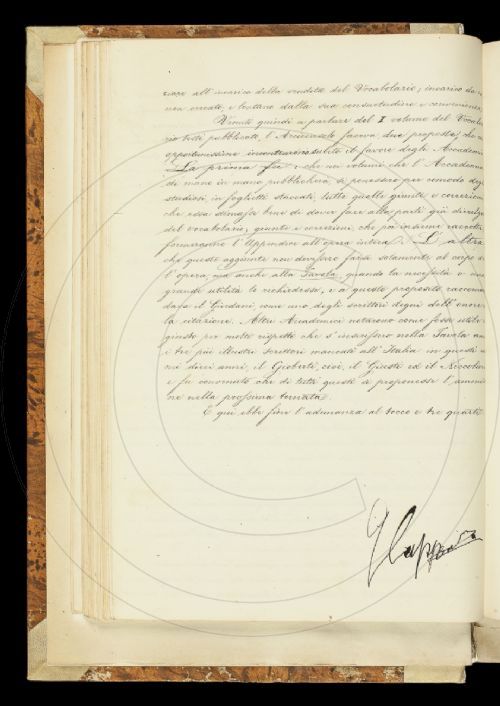 ziare all'incarico della vendita del Vocabolario; incarico da
non curato, e lontano dalla sua consuetudine e convenienza.
Venuto quindi a parlare del I volume del Vocabola
rio testè pubblicato, l'Arciconsolo faceva due proposte, che
opportunissime incontrarono subito il favore degli Accademici
La prima fu: che nei volumi che l'Accademia
di mano in mano pubblicherà, si pensasse per comodo degli
studiosi, in foglietti staccati, tutte quelle giunte e correzioni
che essa stimasse bene di dover fare alla parte già divulgata
del vocabolario; giunte e correzioni, che poi insieme raccolte
formeranno l'Appendice all'opera intera. L'altra
che queste aggiunte non dovessero farsi solamente al corpo del
l'opera, ma anche alla Tavola, quando la necessità o una
grande utilità le richiedesse; e a questo proposito raccoman
dava il Giordani come uno degli scrittori degni dell'onore
la citazione. Altri Accademici notarono come fosse utile
giusto per molti rispetti che s'inserissero nella Tavola an
i tre più illustri scrittori mancati all'Italia in questi
mi dieci anni, il Gioberti, cioè, il Giusti ed il Niccolini
e fu convenuto che di tutti questi si proponesse l'ammis
ne nella prossima tornata.
E qui ebbe fine l'adunanza al tocco e tre quarti